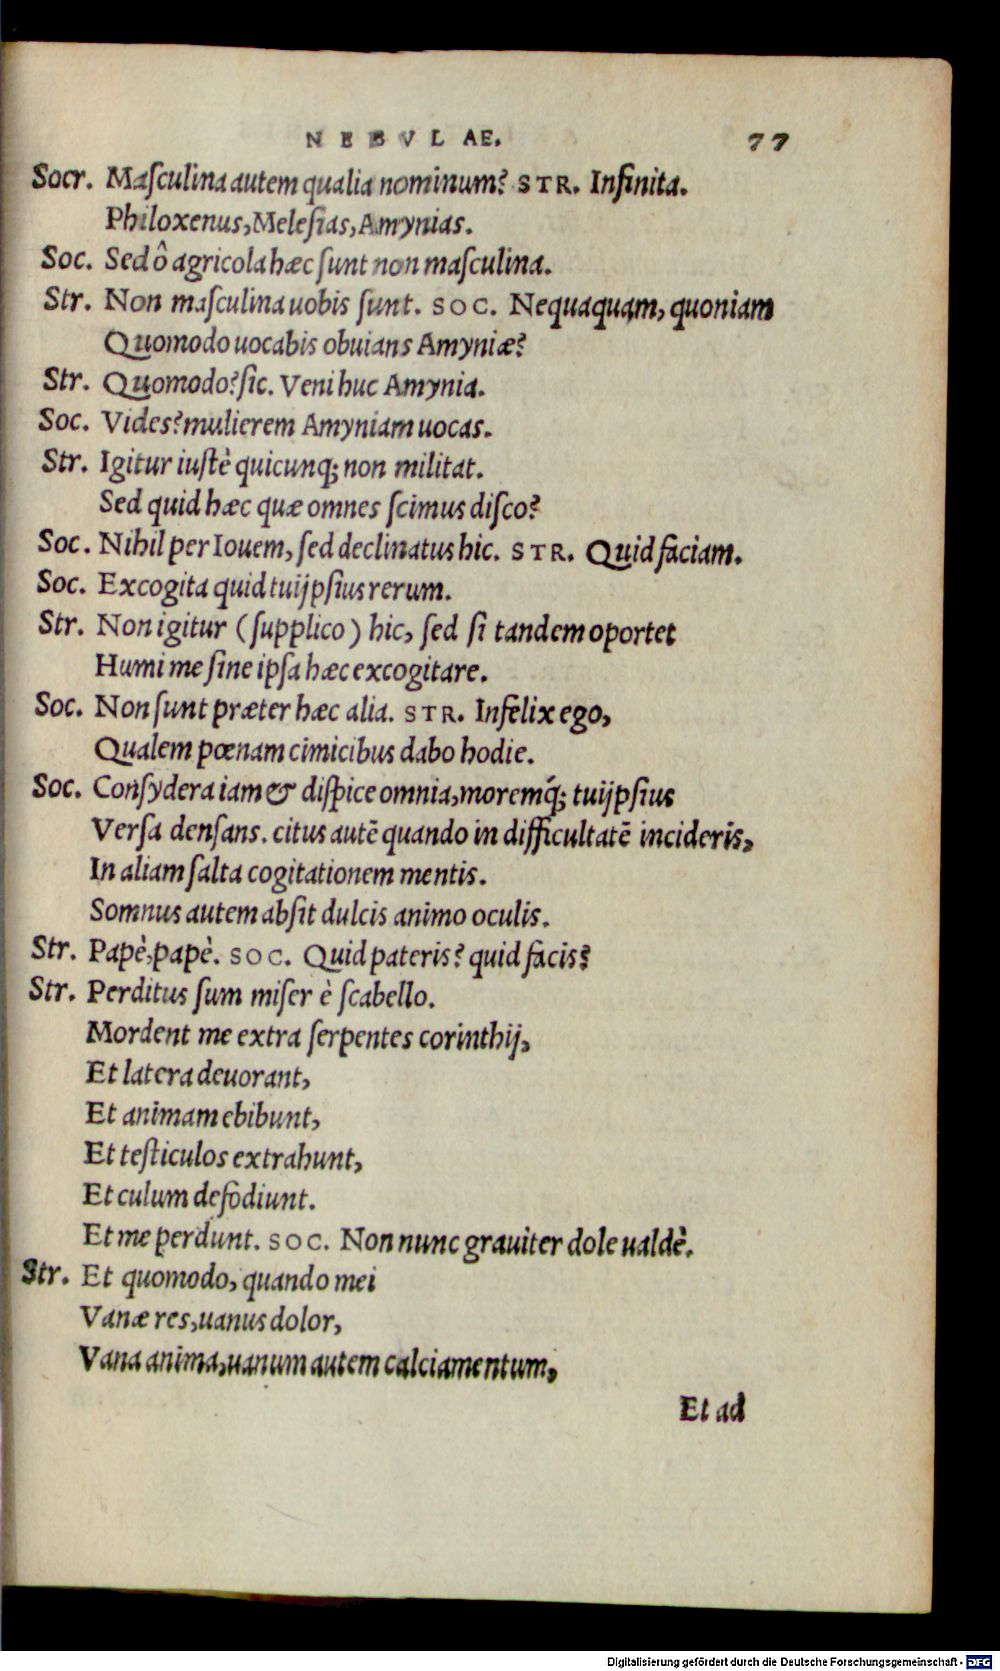 NEBVLAE. 77
Socr. Maſculina autem qualia nominum? STR. Infinita.
Philoxenus, Meleſias, Amynias.
Soc. Sed ô agricola hæc ſunt non maſculina.
Str. Non maſculina uobis ſunt. SOC. Nequaquam, quoniam
Quomodo uocabis obuians Amyniæ?
Str. Quomodo? ſic. Veni huc Amynia.
Soc. Vides? mulierem Amyniam uocas.
Str. Igitur iuſtè quicunq; non militat.
Sed quid hæc quæ omnes ſcimus diſco?
Soc. Nihil per Iouem, ſed declinatus hic. STR. Quid faciam.
Soc. Excogita quid tuijpſius rerum.
Str. Non igitur (ſupplico) hic, ſed ſi tandem oportet
Humi me ſine ipſa hæc excogitare.
Soc. Non ſunt præter hæc alia. STR. Infelix ego,
Qualem pœnam cimicibus dabo hodie.
Soc. Conſydera iam & diſpice omnia, moremq́; tuijpſius
Verſa denſans. citus autē quando in difficultatē incideris,
In aliam ſalta cogitationem mentis.
Somnus autem abſit dulcis animo oculis.
Str. Papè, papè. SOC. Quid pateris? quid facis?
Str. Perditus ſum miſer è ſcabello.
Mordent me extra ſerpentes corinthij,
Et latera deuorant,
Et animam ebibunt,
Et teſticulos extrahunt,
Et culum defodiunt.
Et me perdunt. SOC. Non nunc grauiter dole ualdè.
Str. Et quomodo, quando mei
Vanæ res, uanus dolor,
Vana anima, uanum autem calciamentum,
Et ad
Digitalisierung gefördert durch die Deutsche Forschungsgemeinschaft - DFG